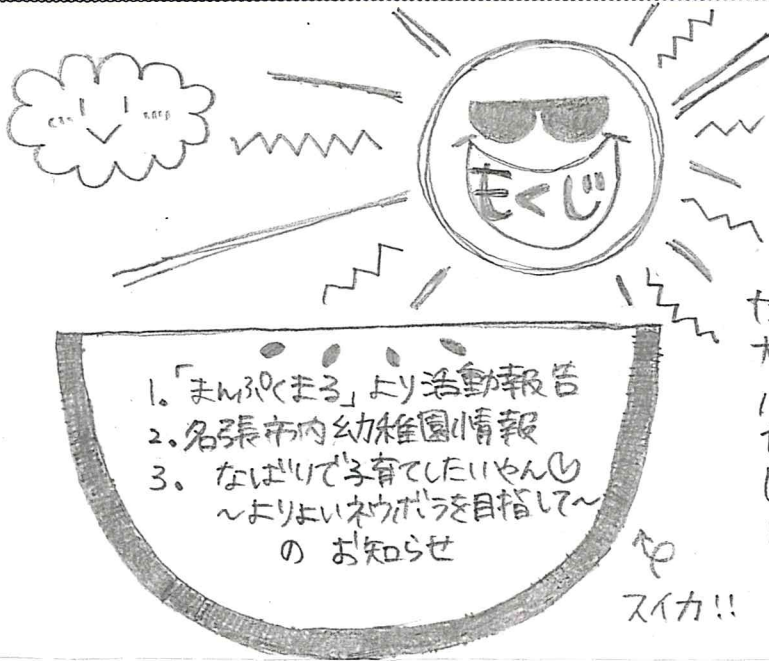 もくじ
1.「まんぷくまる」より活動報告
2.名張市内幼稚園情報
3. なばりで子育てしたいやん♡
～よりよいネウボラを目指して～
の お知らせ
スイカ!!